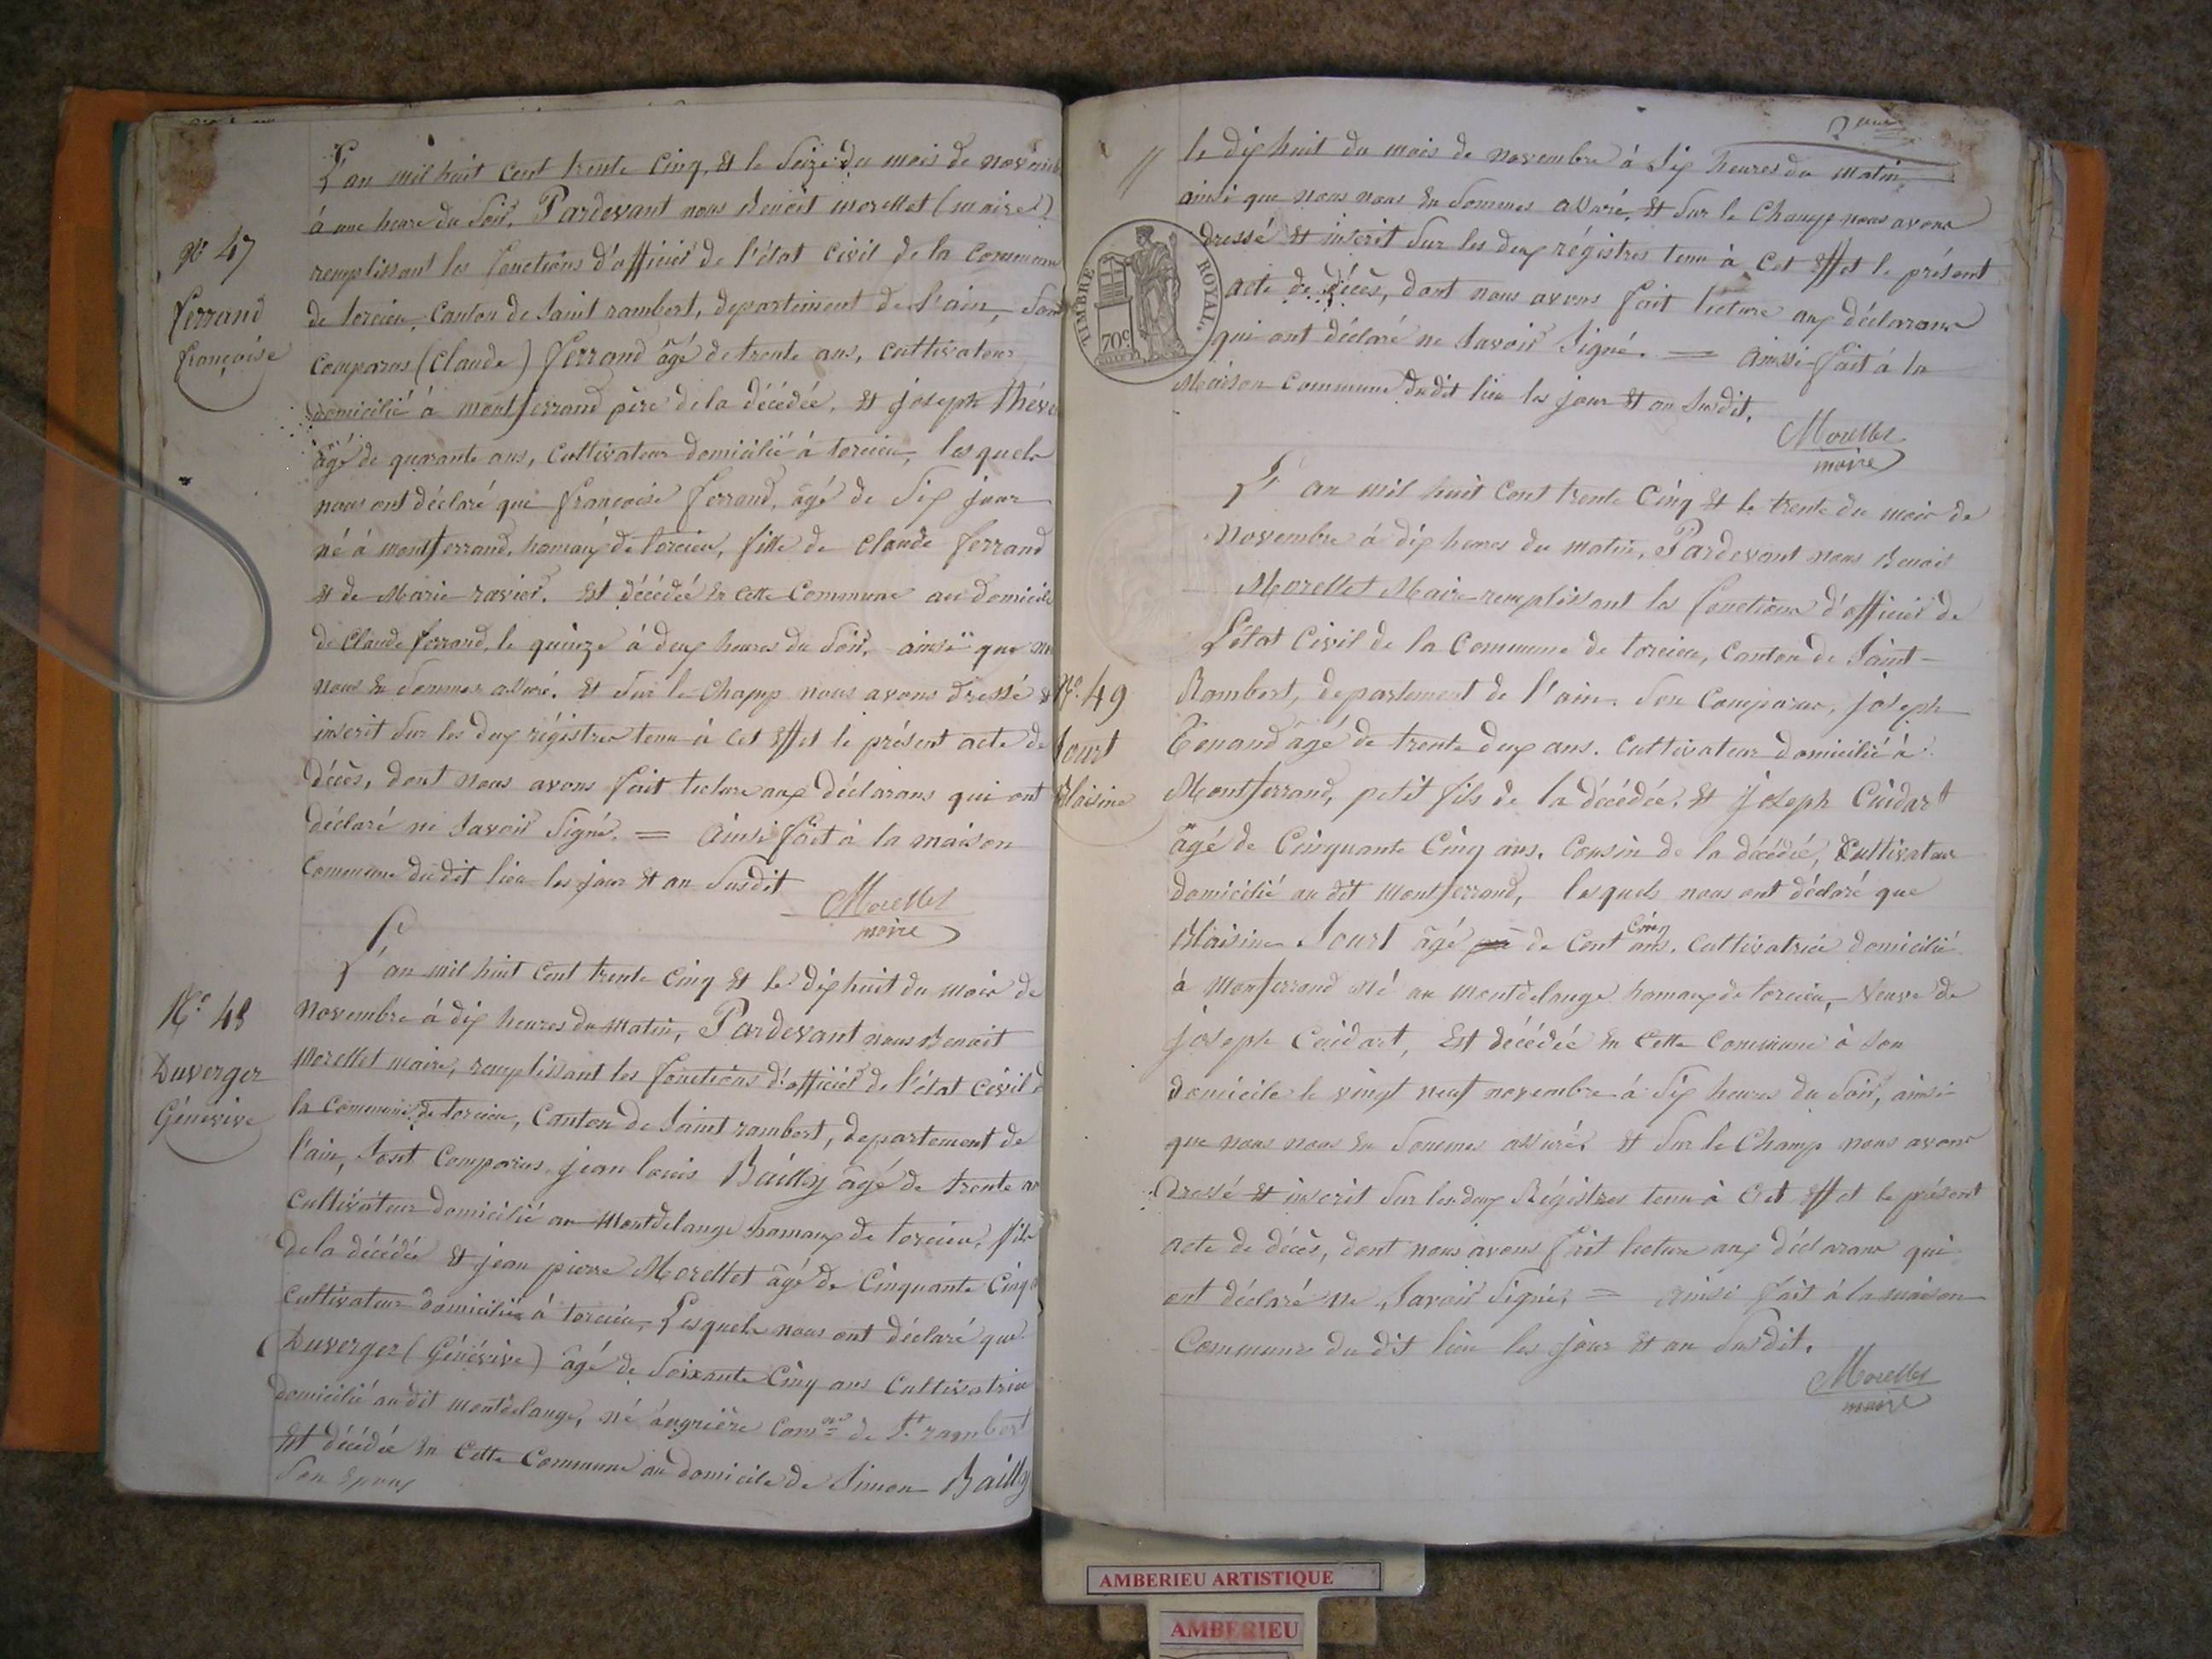 L'an mil huit cent trente cinq, et le seize du mois de novemb
à une heure du soir, Pardevant nous Benoit morellet (maire)
N° 47
remplissant les fonctions d'officier de l'état civil de la commune
ferrand
de torcieu, canton de saint rambert, departement de l'ain, sont
françoise
comparus (claude) ferrand âgé de trente ans, cultivateur
domicilié à montferrand père de la décédée, et joseph théve
âgé de quarante ans, cultivateur domicilié à torcieu, lesquels
nous ont déclaré que françoise ferrand, âgé de six jour
né à montferrand, hamaux de torcieu, fille de claude ferrand
et de Marie ravier. est décédée en cette commune au domicile
de claude ferrand, le quinze à deux heures du soir, ainsi que
nous en sommes assuré. et sur le champ nous avons dressé &
inscrit sur les deux régistres tenu à cet effet le présent acte de
décès, dont nous avons fait lecture aux déclarans qui ont
déclaré ne savoir signé. = ainsi fait à la maison
commune du dit lieu les jour et an susdit
Morellet
maire
L'an mil huit cent trente cinq et le dix huit du mois de
N° 48
novembre à dix heures du matin, Pardevant nous Benoit
Duverger
morellet maire, remplissant les fonctions d'officier de l'état civil d
Génévive
la commune de torcieu, canton de saint rambert, departement de
l'ain, sont comparus jean louis Bailly âgé de trente an
cultivateur domicilié au Montdelange hamaux de torcieu, fils
de la décédée et jean pierre Morellet âgé de cinquante cinq
cultivateur domicilié à torcieu, Lesquels nous ont déclaré que
Duverger (Génévive) âgé de soixante cinq ans cultivatrice
domicilié au dit montdelange, né angrière comne de St rambert
est décédée en cette commune au domicile de Simon Bailly
son epoux
2 aout
le dix huit du mois de novembre à six heures du matin,
ainsi que nous nous en sommes assuré. et sur le champ nous avons
dressé et inscrit sur les deux régistres tenu à cet effet le présent
acte de décès, dont nous avons fait lecture aux déclarans
qui ont déclaré ne savoir signé. = ainssi fait à la
Maison commune dudit lieu les jour et an susdit.
TIMBRE ROYAL
70c
Morellet
maire
L'an mil huit cent trente cinq et le trente du mois de
Novembre à dix heures du matin, Pardevant nous Benoit
Morellet Maire remplissant les fonctions d'officier de
L'état civil de la commune de torcieu, canton de saint-
N° 49
Rambert, departement de l'ain. son comparus, joseph
Jourt
Tenand âgé de trente deux ans. cultivateur domicilié à
Blaisine
Montferrand, petit fils de la décédée. et joseph Cuidart
âgé de cinquante cinq ans. cousin de la décédée, cultivateur
domicilié au dit montferrand, lesquels nous ont déclaré que
Blaisine Jourt âgé de cent cinq ans. cultivatrice domicilié
à Monferrand né au montdelange hamaux de torcieu, veuve de
joseph Cuidart, est décédée en cette commune à son
domicile le vingt neuf novembre à six heures du soir, ainsi
que nous nous en sommes assuré. et sur le champ nous avons
dressé et inscrit sur les deux Régistres tenu à cet effet le présent
acte de décès, dont nous avons fait lecture aux déclarans qui
ont déclaré ne savoir signé, = ainsi fait à la maison
commune du dit lieu les jour et an susdit.
Morellet
maire
AMBERIEU ARTISTIQUE
AMBERIEU